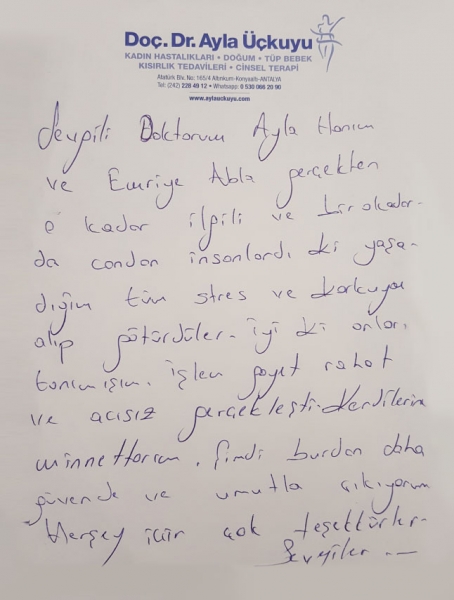 Doç. Dr. Ayla Üçkuyu
KADIN HASTALIKLARI • DOĞUM • TÜP BEBEK
KISIRLIK TEDAVİLERİ • CİNSEL TERAPİ
Atatürk Blv. No: 165/4 Altınkum-Konyaaltı-ANTALYA
Tel: (242) 228 49 12 • Whatsapp: 0 536 066 20 90
www.aylauckuyu.com
Sevgili Doktorum Ayla Hanım
ve Emriye Abla gerçekten
o kadar ilgili ve bir okadar
da candan insanlardı ki yaşa-
dığım tüm stres ve korkuyu
alıp götürdüler. iyi ki onları
tanımışım. işlem gayet rahat
ve acısız gerçekleşti. Kendilerine
minnettarım. Şimdi burdan daha
güvende ve umutla çıkıyorum
Herşey için çok teşekkürler
Sevgiler